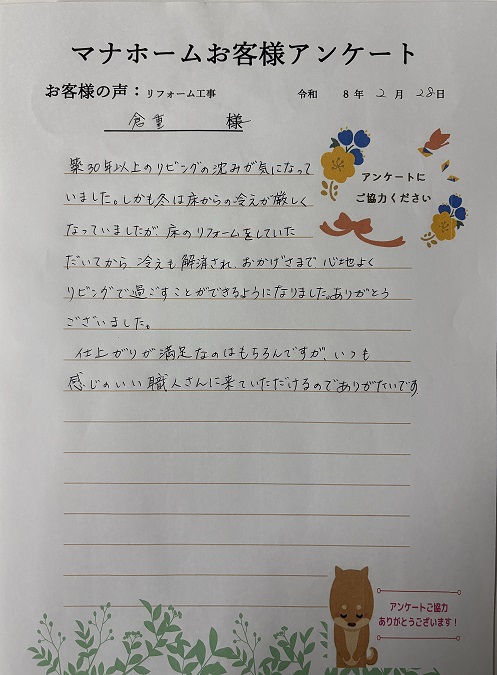 マナホームお客様アンケート
お客様の声：リフォーム工事 令和 8年 2月 28日
倉重 様
アンケートに
ご協力ください
築30年以上のリビングの沈みが気になって
いました。しかも冬は床からの冷えが厳しく
なっていましたが、床のリフォームをしていた
だいてから 冷えも解消され、おかげさまで心地よく
リビングで過ごすことができるようになりました。ありがとう
ございました。
仕上がりが満足なのはもちろんですが、いつも
感じのいい職人さんに来ていただけるのでありがたいです。
アンケートご協力
ありがとうございます！